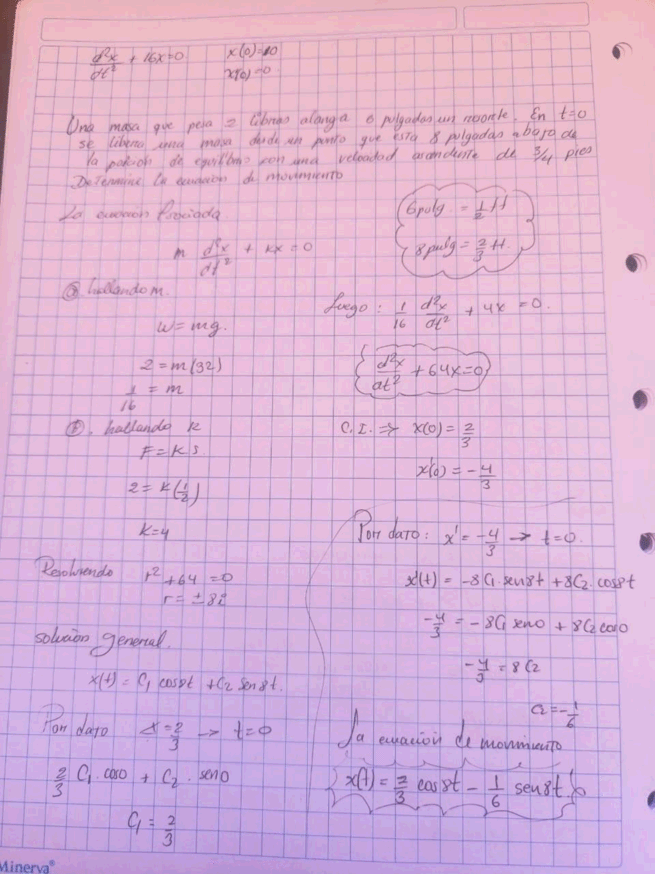 d²x/dt² + 16x=0 x(0)=10
x'(0)=0
Una masa que pesa 2 libras alarga 6 pulgadas un resorte. En t=0
se libera una masa desde un punto que esta 8 pulgadas abajo de
la posición de equilibrio con una velocidad ascendente de 3/4 pies
Determine la ecuación de movimiento
La ecuación
m d²x/dt² + kx = 0
6 pulg. = 1/2 ft
8 pulg = 2/3 ft.
ⓐ hallando m.
w = mg.
2 = m(32)
1/16 = m
ⓑ. hallando k
F = K S.
2 = k(1/2)
K=4
Luego : 1/16 d²x/dt² + 4x = 0.
d²x/dt² + 64x=0
C.I. => x(0) = 2/3
x'(0) = -4/3
Resolviendo r² + 64 = 0
r = ± 8i
solución general.
x(t) = C₁ cos8t + C₂ sen8t.
Por dato x = 2/3 → t=0
2/3 C₁ . cos0 + C₂ . sen0
C₁ = 2/3
Por dato : x' = -4/3 → t=0.
x'(t) = -8C₁.sen8t + 8C₂.cos8t
-4/3 = -8C₁ sen0 + 8C₂ cos0
-4/3 = 8C₂
C₂ = -1/6
La ecuación de movimiento
x(t) = 2/3 cos8t - 1/6 sen8t.
Minerva®